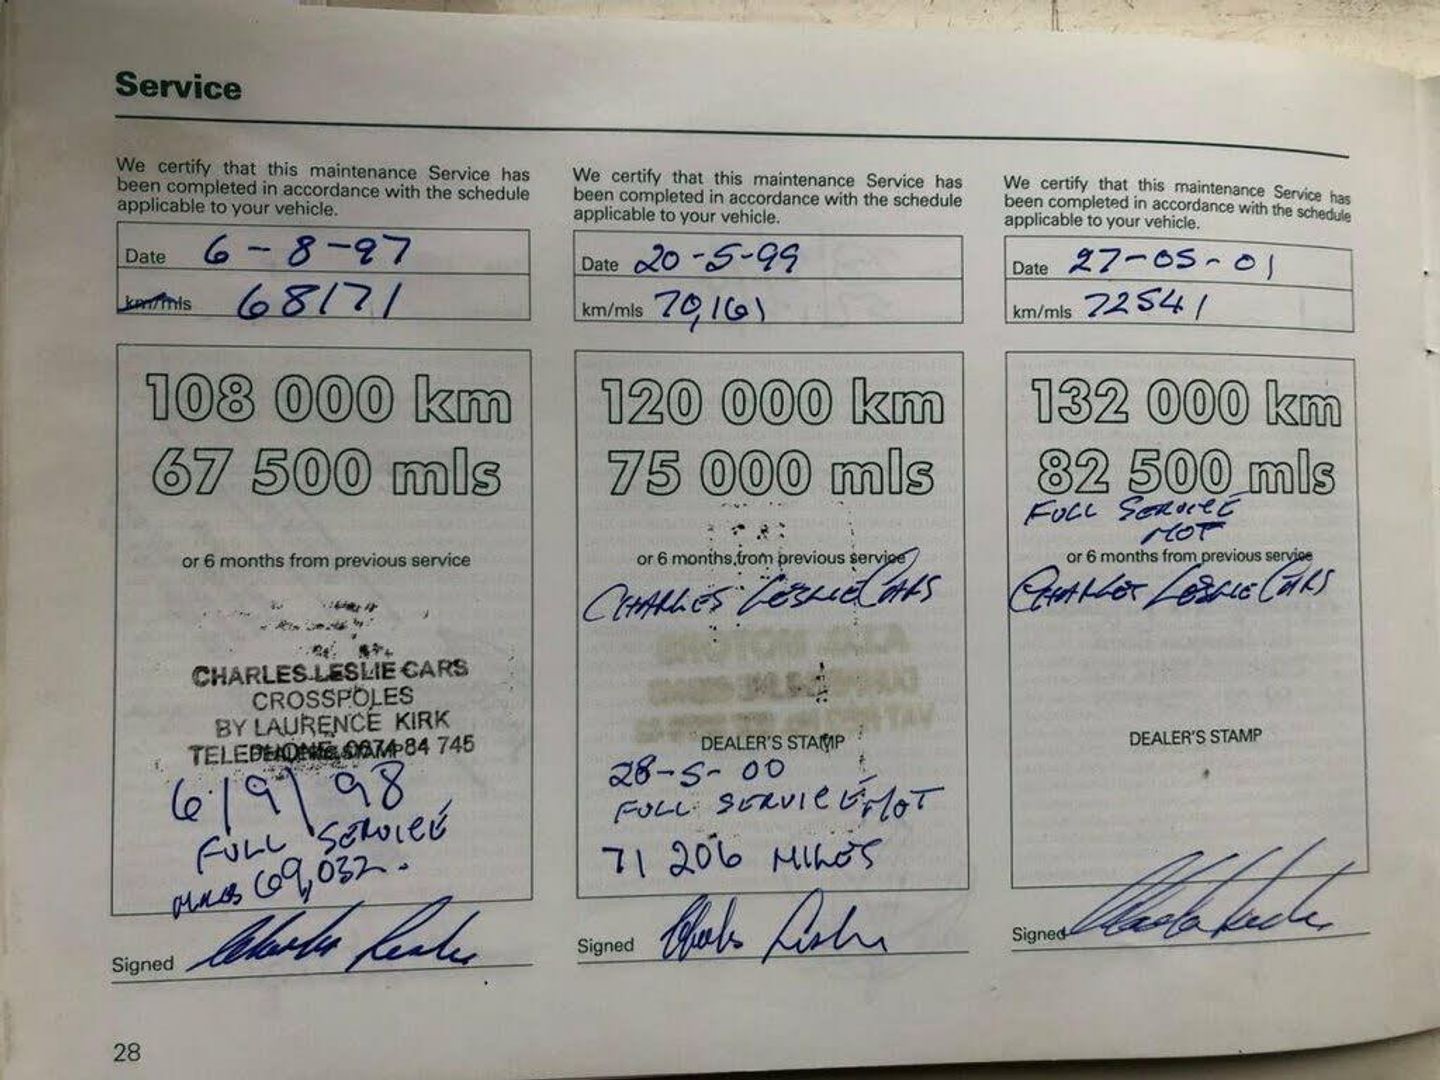 Service
We certify that this maintenance Service has
been completed in accordance with the schedule
applicable to your vehicle.
Date 6-8-97
km/mls 68171
108 000 km
67 500 mls
or 6 months from previous service
CHARLES LESLIE CARS
CROSSPOLES
BY LAURENCE KIRK
TELEPHONE 0674 84 745
DEALER'S STAMP
6/9/98
FULL SERVICE
69,032.
Signed Charles Leslie
We certify that this maintenance Service has
been completed in accordance with the schedule
applicable to your vehicle.
Date 20-5-99
km/mls 70,161
120 000 km
75 000 mls
or 6 months from previous service
CHARLES LESLIE CARS
DEALER'S STAMP
28-5-00
FULL SERVICE MOT
71 206 MILES
Signed Charles Leslie
We certify that this maintenance Service has
been completed in accordance with the schedule
applicable to your vehicle.
Date 27-05-01
km/mls 72541
132 000 km
82 500 mls
FULL SERVICE
MOT
or 6 months from previous service
CHARLES LESLIE CARS
DEALER'S STAMP
Signed Charles Leslie
28